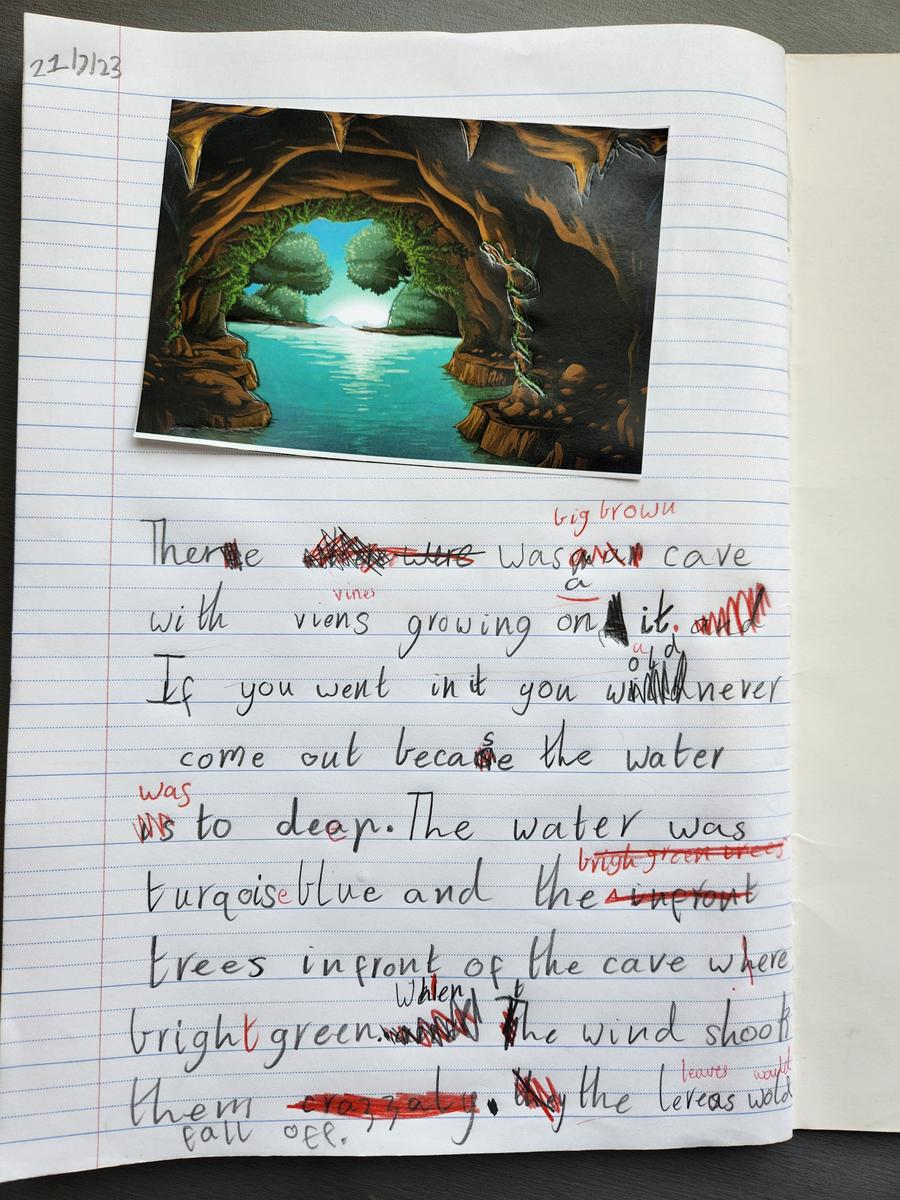 21/7/23
big brown
There were was a cave
vines
with viens growing on it. and
If you went in it you would never
come out becase the water
was
is to deep. The water was
brigh green trees
turqoise blue and the infront
trees infront of the cave where
When
bright green. the wind shook
leaves would
them crazzaly. the lereas wold
fall off.